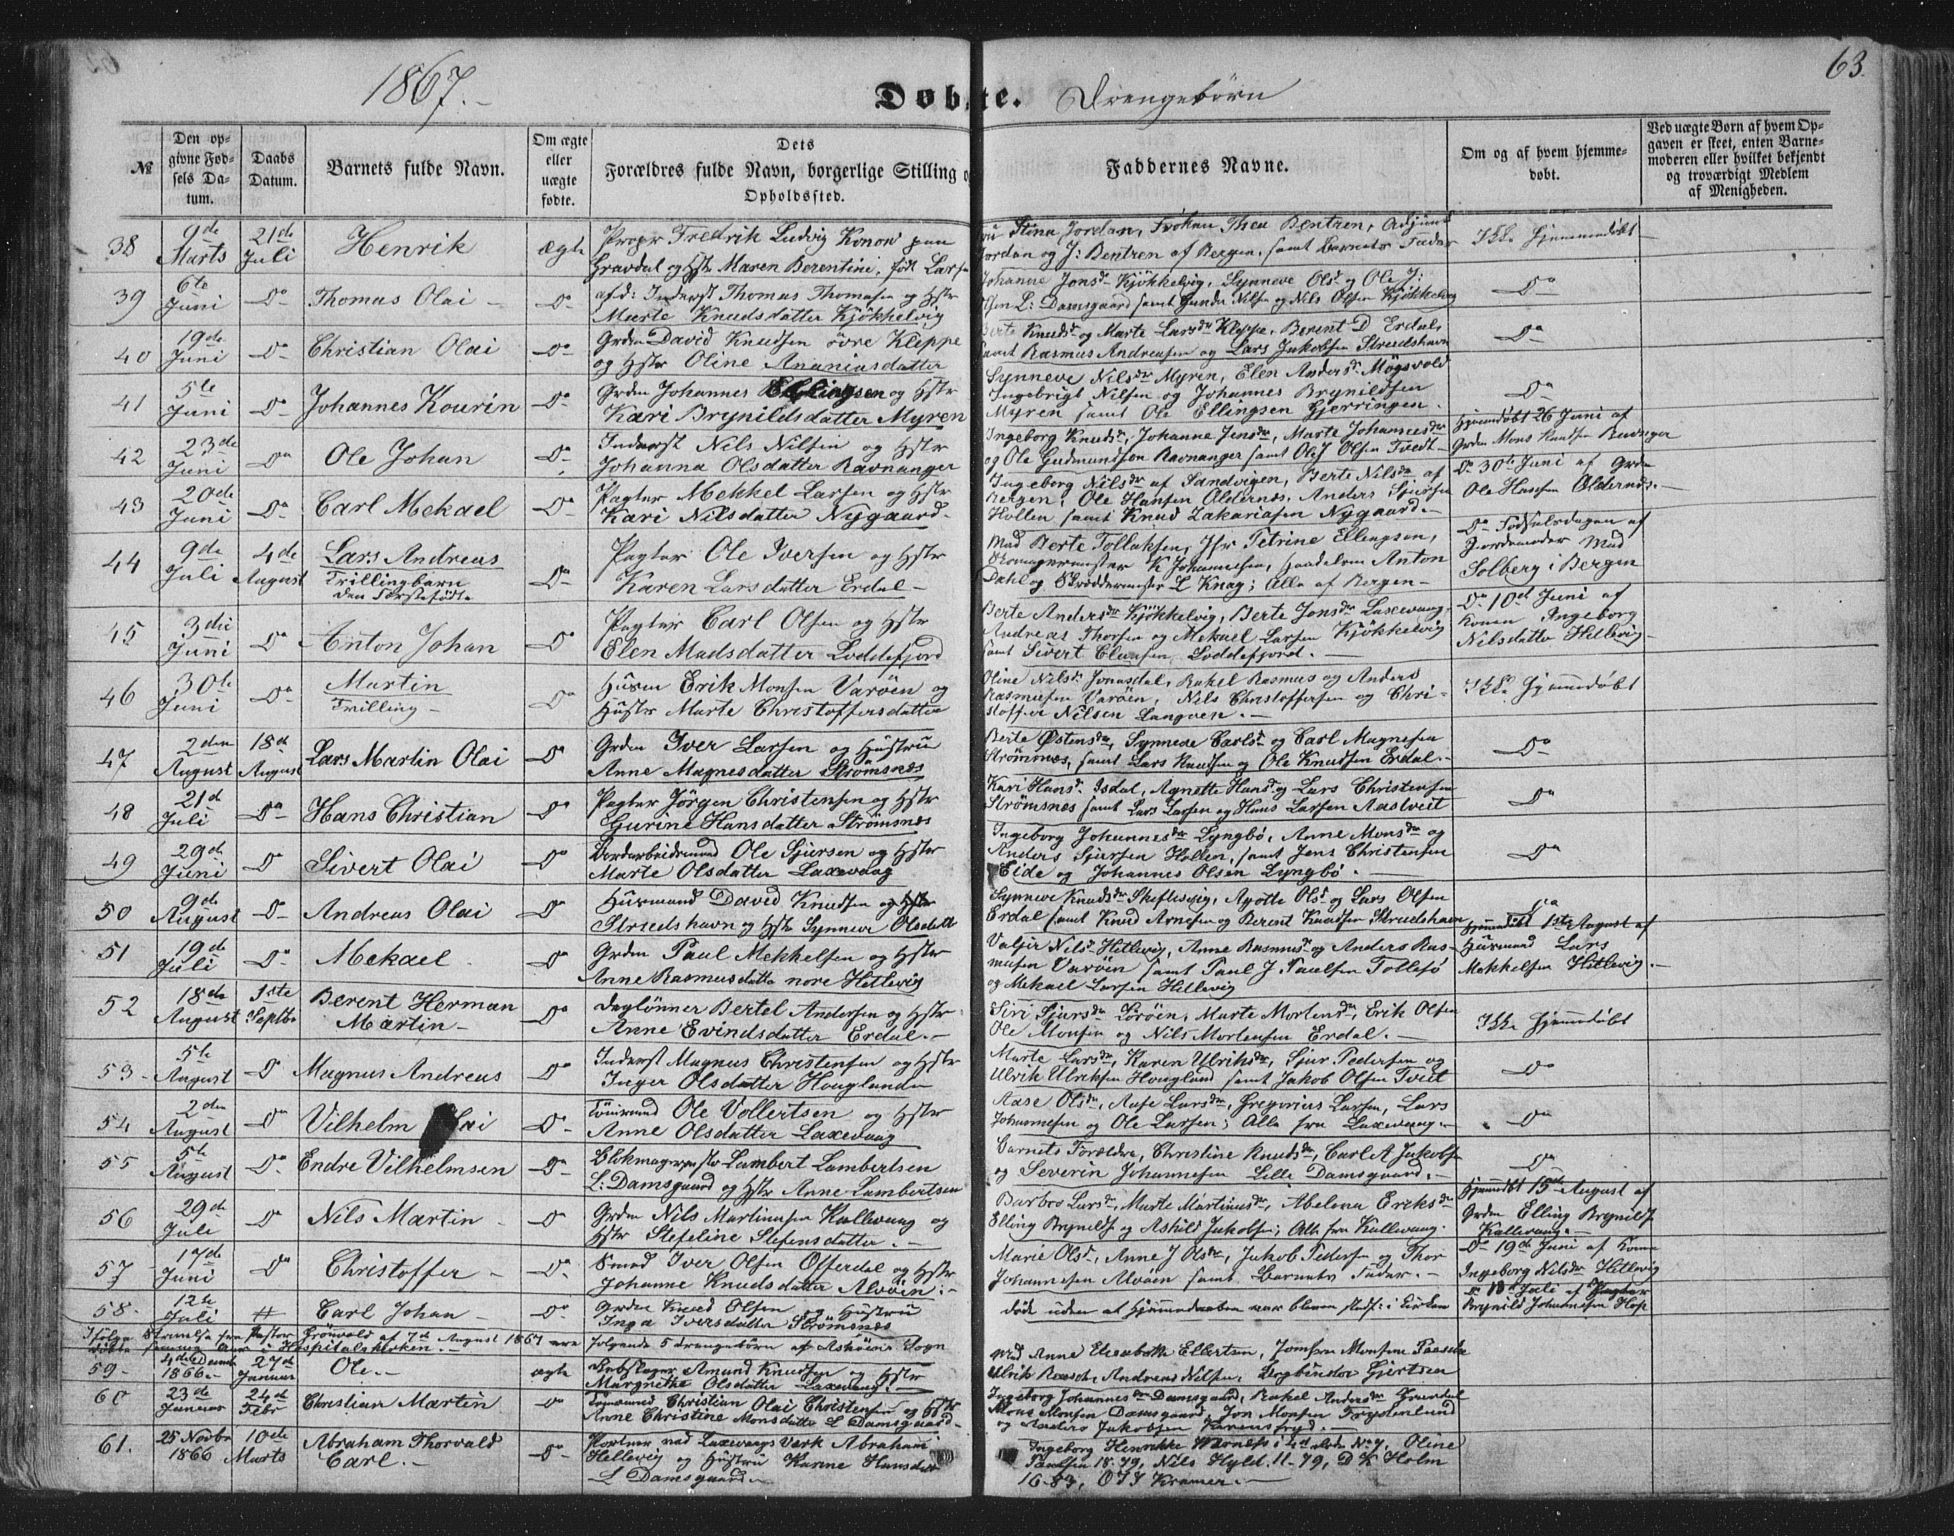 1867.
Döbte. Drengebörn
63.
№
Den opgivne Fødsels Datum.
Daabs Datum.
Barnets fulde Navn.
Om ægte eller uægte fødte.
Dets Forældres fulde Navn, borgerlige Stilling og Opholdssted.
Faddernes Navne.
Om og af hvem hjemmedøbt.
Ved uægte Børn af hvem Opgaven er skeet, enten Barnemoderen eller hvilket bekjendt og troværdigt Medlem af Menigheden.
38 9de Marts 21de Juli Henrik ægte Propr Fredrik Ludvig Konow paa
Gravdal og Hstr Maren Berentine, født Larsen
Stina Jordan, Frøken Thea Bentzen, Adjunkt
Jordan og J: Bentzen af Bergen, samt Barnets Fader
Ikke Hjemmedöbt
39 6te Juni Do Thomas Olai Do afd: Inderst Thomas Thomasen og Hstr
Marte Knudsdatter Kjökkelvig
Johanne Jonsdr Kjökkelvig, Synneve Olsd og Ole J:
Olsen L: Damsgaard samt Gunder Nilsen og Nils Olsen Kjökkelvig
Do
40 19de Juni Do Christian Olai Do Grdm David Knudsen övre Kleppe
og Hstr Oline Ananiasdatter
Berte Knudsdr og Marte Larsdr Kleppe, Berent D Erdal,
samt Rasmus Andreasen og Lars Jakobsen Struedshavn
Do
41 5te Juni Do Johannes Kourin Do Grdm Johannes Ellingsen og Hstr
Kari Brynildsdatter Myren
Synneve Nilsdr Myren, Elen Andersdr Mögsvold
Ingebrigt Nilsen og Johannes Brynildsen
Myren samt Ole Ellingsen Gjerringen.
Do
42 23de Juni Do Ole Johan Do Inderst Nils Nilsen og Hstr
Johanna Olsdatter Ravnanger
Ingeborg Knudsdr, Johanne Jensdr, Marte Johannesdr
og Ole Gudmundsen Ravnanger samt Ole J Olsen Tvedt
Hjemmedöbt 26 Juni af
Grdm Mons Knudsen
43 20de Juni Do Carl Mekael Do Pagter Mekkel Larsen og Hstr
Kari Nilsdatter Nygaard
Ingeborg Nilsdr af Sandvigen, Berte Nilsdr af
Bergen, Ole Hansen Aldernes, Anders Sjursen
Hollen samt Knud Zakariasen Nygaard.
Do 30te Juni af Grdm
Ole Hansen Aldernes.
44 9de Juli 4de August Lars Andreas
Trillingbarn
den Förstefödte
Do Pagter Ole Iversen og Hstr
Karen Larsdatter Erdal
Mad Berte Tollaksen, Jfr Petrine Ellingsen,
Skomagermester K Johannesen, Handelsm Anton
Dahl og Skræddermester L Knag; Alle af Bergen
Do Födselsdagen af
Jordemoder Mad
Solberg i Bergen
45 3die Juni Do Anton Johan Do Pagter Carl Olsen og Hstr
Elen Madsdatter Loddefjord
Berte Andersdr Kjökkelvig, Berte Jonsdr Laxevaag,
Andreas Thorsen og Mekael Larsen Kjökkelvig
samt Sivert Clausen Loddefjord.
Do 10de Juni af
Konen Ingeborg
Nilsdatter Hillevig
46 30te Juni Do Martin
Trilling
Do Husm Erik Monsen Varöen og
Hustr Marte Christoffersdatter
Oline Nilsdr Jonasdal, Rakel Rasmus og Anders
Rasmusen Varöen, Nils Christoffersen og Chri-
stoffer Nilsen Langven.
Ikke Hjemmedöbt
47 2den August 18de August Lars Martin Olai Do Grdm Iver Larsen og Hustru
Anne Magnesdatter Strömsnæs
Berte Östensdr, Synneve Carlsd og Carl Magnesen
Strömsnes, samt Lars Knudsen og Ole Knudsen Erdal.
Do
48 21de Juli Do Hans Christian Do Pagter Jörgen Christensen og Hstr
Gurine Hansdatter Strömsnæs
Kari Hansd Isdal, Agnette Hansd og Lars Christensen
Strömsnes samt Lars Larsen og Hans Larsen Aastveit
Do
49 29de Juni Do Sivert Olai Do Jordarbeidsmand Ole Sjursen og Hstr
Marte Olsdatter Laxevaag
Ingeborg Johannesdr Lyngbö, Anne Monsdr og
Anders Sjursen Hollen, samt Jens Christensen
Eide og Johannes Olsen Lyngbö.
Do
50 9de August Do Andreas Olai Do Husmand David Knudsen og Hstr
Struedshavn og Hstr Synneve Olsdatt
Synneve Knudsdr Skiftesvig, Agötte Olsd og Lars Olsen
Erdal samt Knud Arnesen og Berent Knudsen Struedshavn
Do
51 19de Juli Do Mekael Do Grdm Paul Mekkelsen og Hstr
Anne Rasmusdatter nore Hetlevig
Valgjer Nilsd Hetlevig, Anne Rasmusd og Anders Ras-
musen Varöen samt Paul J Paulsen Follesö
og Mekael Larsen Hillevig
Hjemmedöbt 1ste August af
Husmand Lars
Mekkelsen Hitlevig.
52 18de August 1ste Septbr Berent Herman
Martin
Do Daglönner Bertel Andersen og Hstr
Anne Evindsdatter Erdal.
Siri Sjursdr Söröen, Marte Mortensdr, Erik Olsen
Ole Monsen og Nils Mortensen Erdal.
Ikke Hjemmedöbt
53 5te August Do Magnus Andreas Do Inderst Magnus Christensen og Hstr
Inger Olsdatter Houglands
Marte Larsdr, Karen Ulriksdr, Sjur Pedersen og
Ulrik Ulriksen Hougland samt Jakob Olsen Tvedt
Do
54 2den August Do Vilhelm Olai Do Tömmermand Ole Vollertsen og Hstr
Anne Olsdatter Laxevaag
Aase Olsdr, Aase Larsdr, Gregorius Larsen, Lars
Johannesen og Ole Larsen; Alle fra Laxevaag.
Do
55 5te August Do Endre Vilhelmsen Do Blokmagermester Lambert Lambertsen
L: Damsgaard og Hstr Anne Lambertsen
Barnets Forældre, Christine Knudsdr, Carl A Jakobsen
og Severin Johannesen Lille Damsgaard.
Do
56 29de Juli Do Nils Martin Do Grdm Nils Martinusen Kallevaag og
Hstr Stefeline Stefensdatter.
Barbro Larsdr, Marte Martinusdr, Abelona Eriksdr
Elling Brynilds og Askild Jakobsen; Alle fra Kallevaag.
Hjemmedöbt 15de August af
Grdm Elling Brynilds
Kallevaag.
57 17de Juni Do Christoffer Do Smed Iver Olsen Olsendal og Hstr
Johanne Knudsdatter Alvöen.
Marie Olsd, Anne J Olsdr, Jakob Pedersen og Thor
Johannesen Alvöen samt Barnets Fader.
Do 19de Juni af Konen
Ingeborg Nilsdr Hitlevig
58 12te Juli # Carl Johan Do Grdm Knud Olsen og Hustru
Inga Iversdatter Strömsnæs
döde uden at Hjemmedaaben var bleven stadf: i Kirken
Do 18de Juli af Pagter
Brynild Johannesen Hop
Ifölge Skrivelse fra Pastor Grönvold af 7de August 1867 ere fölgende 5 drengebörn af Asköens Sogn
döbte samme Aar i Hospitalskirken.
59 4de Decembr 1866 27de Januar Ole ægte Rebslager Amund Knudsen og Hstr
Margrethe Olsdatter Laxevaag.
Mad Anne Elisabeth Ellertsen, Jomfru Monsine Paasche
Ulrik Paasche, Andreas Nilsen, Bogbinder Gjertsen
60 23de Januar 24de Febr Christian Martin Do Tömmermand Christian Olai Christensen og Hstr
Anne Christine Monsdatter L Damsgaard.
Ingeborg Johannesdr Damsgaard, Rakel Andersdr Gravdal
Mons Monsen Damsgaard, Jon Monsen Frydenlund
og Anders Jakobsen Karensfryd.
61. 25 Novbr 1866 10de Marts Abraham Thorvald
Carl.
Do Portner ved Laxevaags Værk Abraham
Hellevig og Hustru Karine Hansdatt
L Damsgaard
Ingeborg Henrikke Warness i 4de Rode No 7, Oline
Paulsen 18-79, Nils Hyld. 11-79, D K Holm
16-83, O T J Kramer.